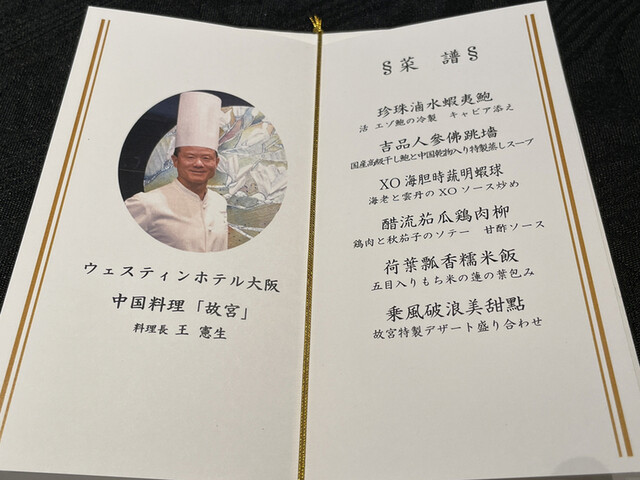 ウェスティンホテル大阪
中国料理「故宮」
料理長 王 憲生
§菜 譜§
珍珠滷水蝦夷鮑
活 エゾ鮑の冷製 キャビア添え
吉品人參佛跳墻
国産高級干し鮑と中国乾物入り特製蒸しスープ
XO海胆時蔬明蝦球
海老と雲丹のXOソース炒め
醋流茄瓜鶏肉柳
鶏肉と秋茄子のソテー 甘酢ソース
荷葉瓢香糯米飯
五目入りもち米の蓮の葉包み
乗風破浪美甜點
故宮特製デザート盛り合わせ